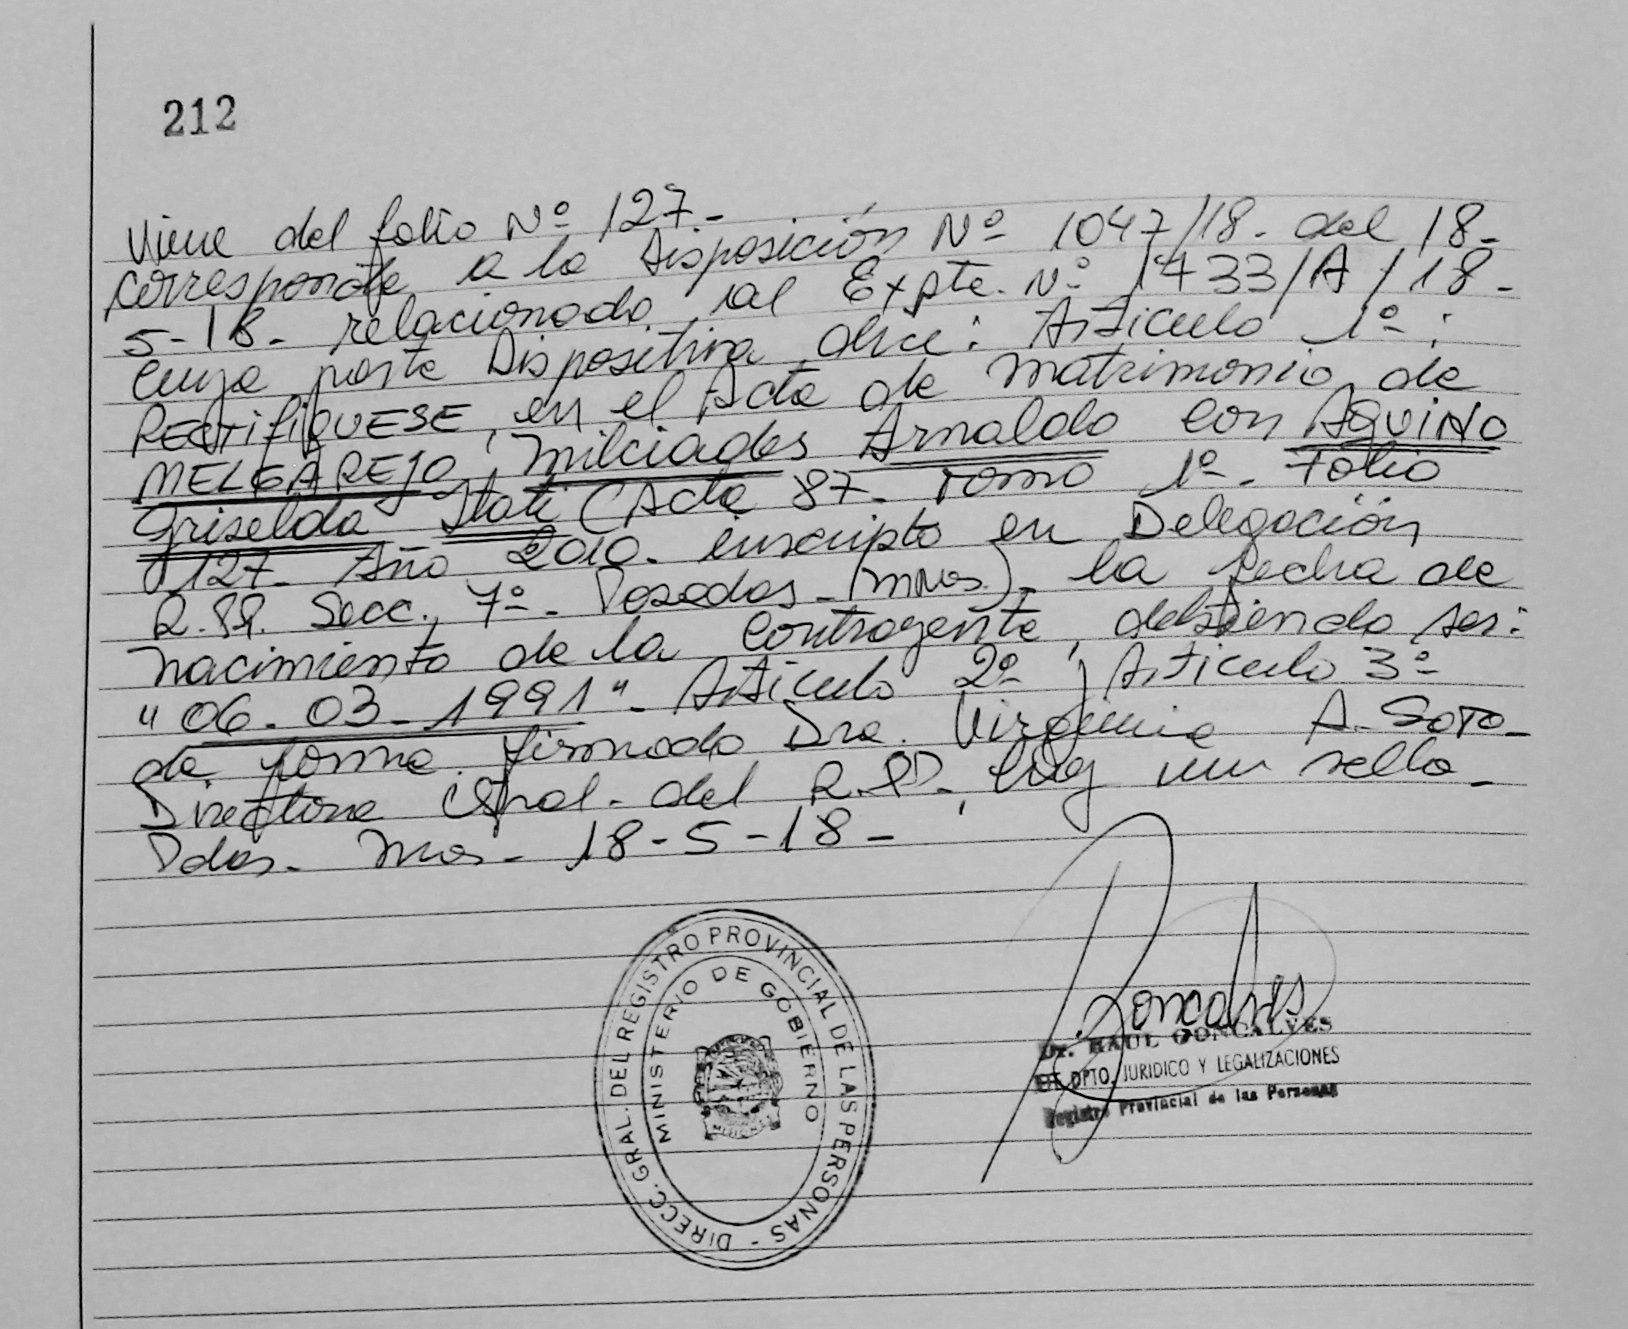 212
Viene del folio Nº 127-
corresponde a la Disposición Nº 1047/18- del 18-
5-18- relacionado al Expte. Nº 1433/A/18-
cuya parte Dispositiva dice: Artículo 1º:
RECTIFIQUESE, en el Acta de matrimonio de
MELGAREJO, Milciades Arnaldo con AQUINO
Griselda Itati (Acta 87- Tomo 1º- Folio
127- Año 2010- inscripto en Delegación
R.PP. Secc., 7º- Posadas-(Mnes)- la fecha de
nacimiento de la contrayente, debiendo ser:
"06-03-1991"- Artículo 2º, Artículo 3º
de forma. firmado Dra. Virginia A. SOTO-
Directora Gral- del R.PP-, Hay un sello-
Pdas- Mnes- 18-5-18-
DIRECC. GRAL. DEL REGISTRO PROVINCIAL DE LAS PERSONAS -
MINISTERIO DE GOBIERNO
MISIONES
Goncalves
Dr. RAUL GONCALVES
DPTO. JURIDICO Y LEGALIZACIONES
Registro Provincial de las Personas